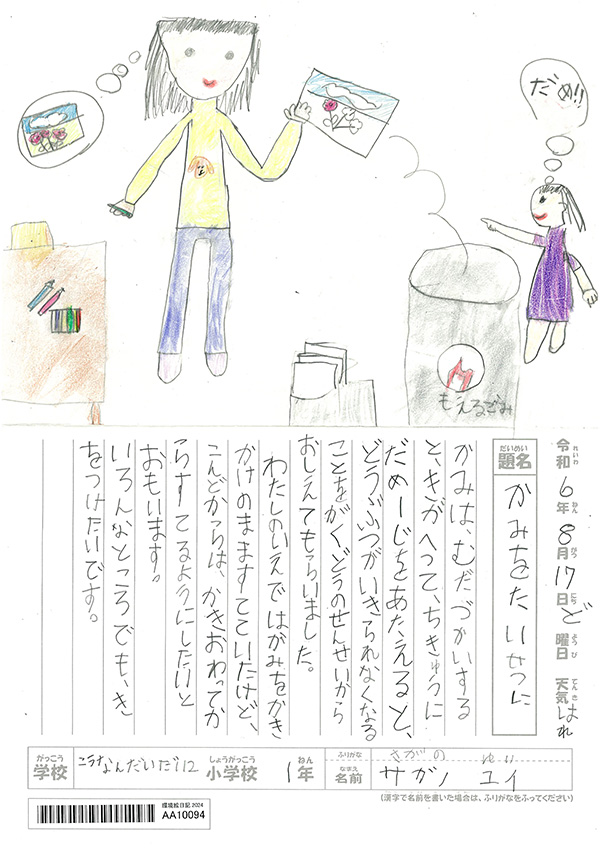 だめ!!
もえるごみ
令和6年8月17日ど曜日 天気はれ
れいわ ねん がつ にち ようび てんき
だいめい
題名 かみをたいせつに
かみは、むだづかいする
と、きがへって、ちきゅうに
だめーじをあたえると、
どうぶつがいきられなくなる
ことをがくどうのせんせいから
おしえてもらいました。
わたしのいえではがみをかき
かけのまますてていたけど、
こんどからは、かきおわってか
らすてるようにしたいと
おもいます。
いろんなところでも、き
をつけたいです。
がっこう しょうがっこう ねん
学校 こうなんだいだ112 小学校 1年
ふりがな さがの ゆい
なまえ
名前 サガノ ユイ
(漢字で名前を書いた場合は、ふりがなをふってください)
環境絵日記 2024
AA10094